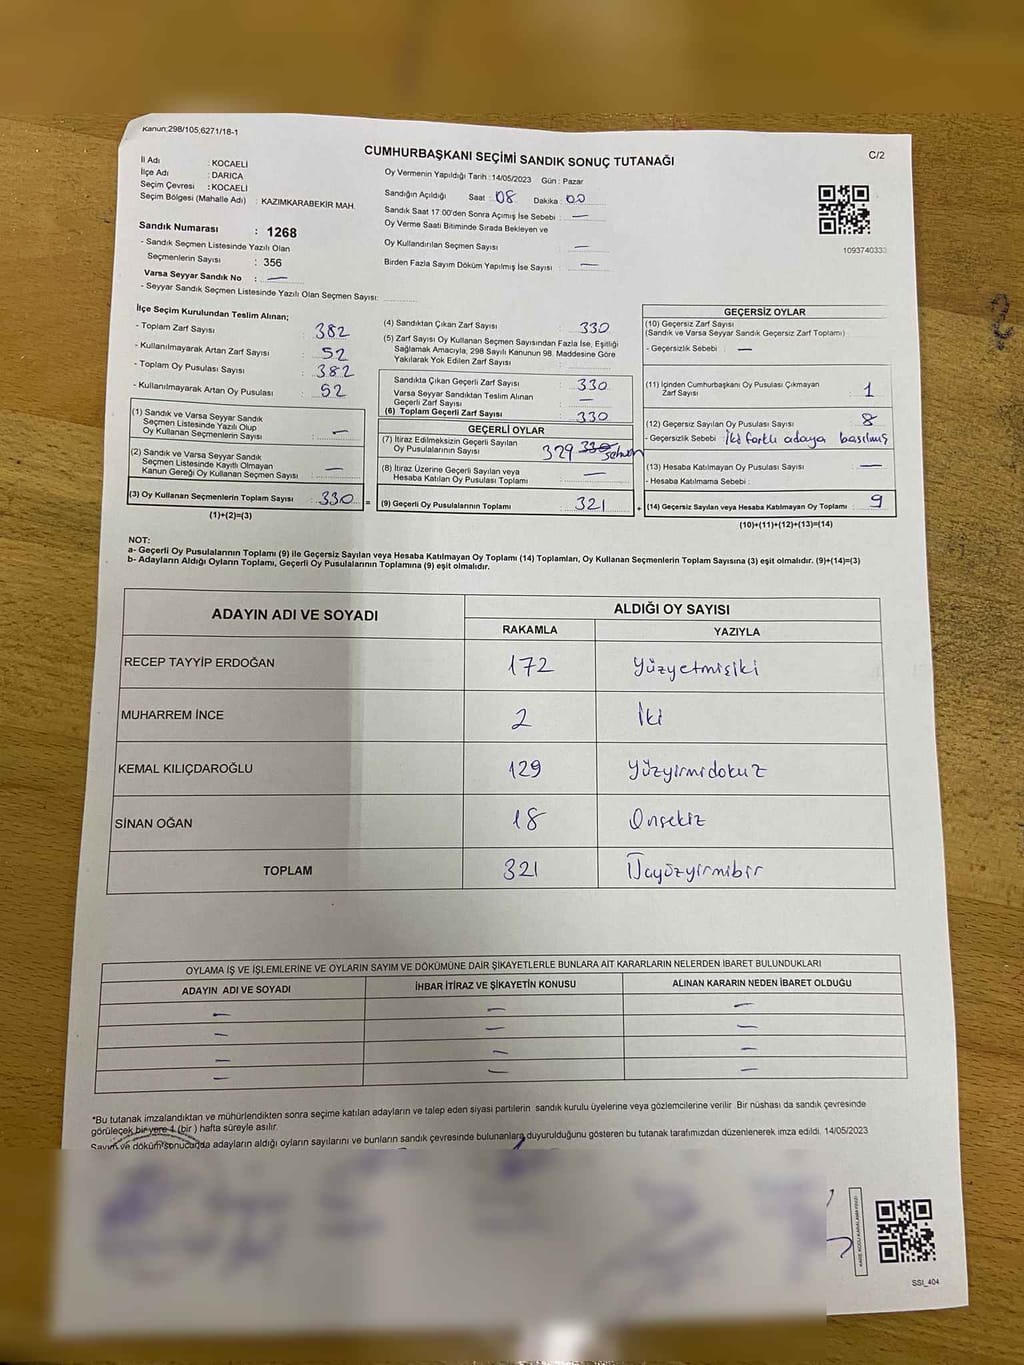 Kanun;298/105;6271/18-1
CUMHURBAŞKANI SEÇİMİ SANDIK SONUÇ TUTANAĞI
C/2
İl Adı : KOCAELİ
İlçe Adı : DARICA
Seçim Çevresi : KOCAELİ
Seçim Bölgesi (Mahalle Adı) : KAZIMKARABEKİR MAH.
Sandık Numarası : 1268
- Sandık Seçmen Listesinde Yazılı Olan
Seçmenlerin Sayısı : 356
Varsa Seyyar Sandık No : —
- Seyyar Sandık Seçmen Listesinde Yazılı Olan Seçmen Sayısı:
Oy Vermenin Yapıldığı Tarih : 14/05/2023 Gün : Pazar
Sandığın Açıldığı Saat 08 Dakika 00
Sandık Saat 17:00'den Sonra Açımış İse Sebebi : —
Oy Verme Saati Bitiminde Sırada Bekleyen ve
Oy Kullandırılan Seçmen Sayısı —
Birden Fazla Sayım Döküm Yapılmış İse Sayısı : —
1093740333
İlçe Seçim Kurulundan Teslim Alınan;
- Toplam Zarf Sayısı : 382
- Kullanılmayarak Artan Zarf Sayısı : 52
- Toplam Oy Pusulası Sayısı : 382
- Kullanılmayarak Artan Oy Pusulası : 52
(1) Sandık ve Varsa Seyyar Sandık
Seçmen Listesinde Yazılı Olup
Oy Kullanan Seçmenlerin Sayısı : —
(2) Sandık ve Varsa Seyyar Sandık
Seçmen Listesinde Kayıtlı Olmayan
Kanun Gereği Oy Kullanan Seçmen Sayısı : —
(3) Oy Kullanan Seçmenlerin Toplam Sayısı : 330 =
(1)+(2)=(3)
(4) Sandıktan Çıkan Zarf Sayısı : 330
(5) Zarf Sayısı Oy Kullanan Seçmen Sayısından Fazla İse, Eşitliği
Sağlamak Amacıyla, 298 Sayılı Kanunun 98. Maddesine Göre
Yakılarak Yok Edilen Zarf Sayısı :
Sandıkta Çıkan Geçerli Zarf Sayısı : 330
Varsa Seyyar Sandıktan Teslim Alınan
Geçerli Zarf Sayısı : —
(6) Toplam Geçerli Zarf Sayısı : 330
GEÇERLİ OYLAR
(7) İtiraz Edilmeksizin Geçerli Sayılan
Oy Pusulalarının Sayısı : 329 330
(8) İtiraz Üzerine Geçerli Sayılan veya
Hesaba Katılan Oy Pusulası Toplamı : —
(9) Geçerli Oy Pusulalarının Toplamı : 321 +
GEÇERSİZ OYLAR
(10) Geçersiz Zarf Sayısı
(Sandık ve Varsa Seyyar Sandık Geçersiz Zarf Toplamı)
- Geçersizlik Sebebi : —
(11) İçinden Cumhurbaşkanı Oy Pusulası Çıkmayan
Zarf Sayısı 1
(12) Geçersiz Sayılan Oy Pusulası Sayısı : 8
- Geçersizlik Sebebi : İki farklı adaya basılmış
(13) Hesaba Katılmayan Oy Pusulası Sayısı —
- Hesaba Katılmama Sebebi :
(14) Geçersiz Sayılan veya Hesaba Katılmayan Oy Toplamı : 9
(10)+(11)+(12)+(13)=(14)
NOT:
a- Geçerli Oy Pusulalarının Toplamı (9) ile Geçersiz Sayılan veya Hesaba Katılmayan Oy Toplamı (14) Toplamları, Oy Kullanan Seçmenlerin Toplam Sayısına (3) eşit olmalıdır. (9)+(14)=(3)
b- Adayların Aldığı Oyların Toplamı, Geçerli Oy Pusulalarının Toplamına (9) eşit olmalıdır.
ADAYIN ADI VE SOYADI
ALDIĞI OY SAYISI
RAKAMLA YAZIYLA
RECEP TAYYİP ERDOĞAN 172 Yüzyetmişiki
MUHARREM İNCE 2 İki
KEMAL KILIÇDAROĞLU 129 Yüzyirmidokuz
SİNAN OĞAN 18 Onsekiz
TOPLAM 321 Üçyüzyirmibir
OYLAMA İŞ VE İŞLEMLERİNE VE OYLARIN SAYIM VE DÖKÜMÜNE DAİR ŞİKAYETLERLE BUNLARA AİT KARARLARIN NELERDEN İBARET BULUNDUKLARI
ADAYIN ADI VE SOYADI İHBAR İTİRAZ VE ŞİKAYETİN KONUSU ALINAN KARARIN NEDEN İBARET OLDUĞU
— — —
— — —
— — —
— — —
*Bu tutanak imzalandıktan ve mühürlendikten sonra seçime katılan adayların ve talep eden siyasi partilerin sandık kurulu üyelerine veya gözlemcilerine verilir Bir nüshası da sandık çevresinde
görülecek bir yere 1 (bir ) hafta süreyle asılır.
Sayım ve döküm sonucunda adayların aldığı oyların sayılarını ve bunların sandık çevresinde bulunanlara duyurulduğunu gösteren bu tutanak tarafımızdan düzenlenerek imza edildi. 14/05/2023
SSI_404